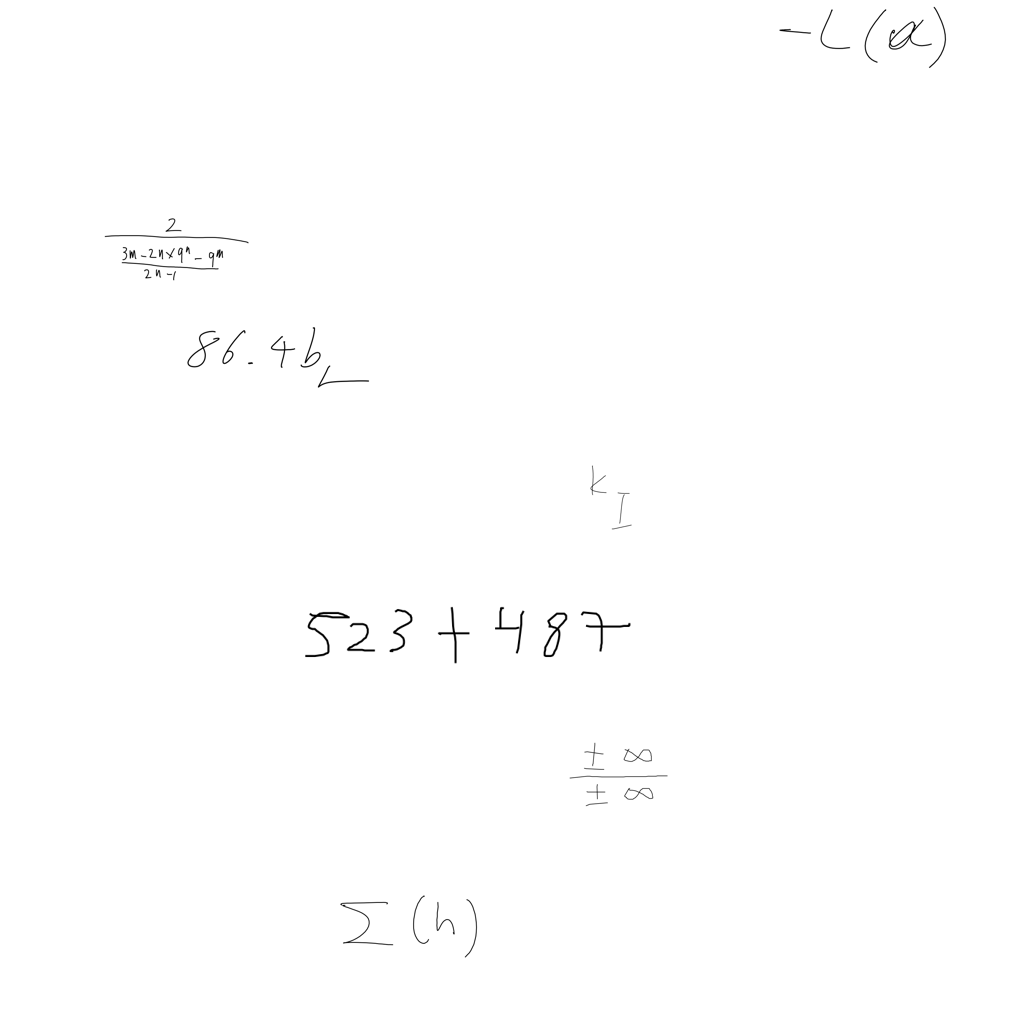 -L(α)
\frac{2}{\frac{3m-2n×9^n-9^m}{2n-1}}
86.4b_L
k_I
523+487
\frac{±∞}{±∞}
Σ(h)